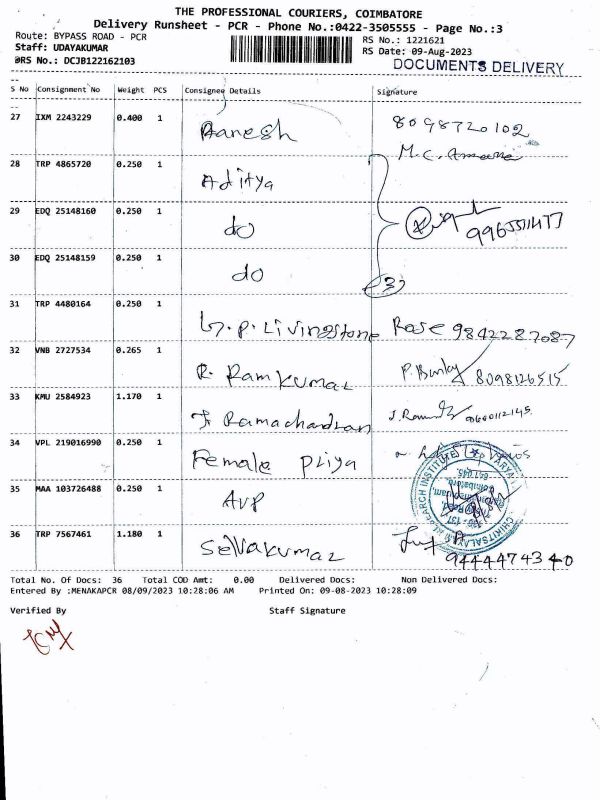 THE PROFESSIONAL COURIERS, COIMBATORE
Delivery Runsheet - PCR - Phone No.:0422-3505555 - Page No.:3
Route: BYPASS ROAD - PCR
RS No.: 1221621
Staff: UDAYAKUMAR
RS Date: 09-Aug-2023
DRS No.: DCJB122162103
DOCUMENTS DELIVERY
S No Consignment No Weight PCS Consignee Details Signature
27 IXM 2243229 0.400 1 Ganesh 8098720102
M.C.
28 TRP 4865720 0.250 1 Aditya
29 EDQ 25148160 0.250 1 do
30 EDQ 25148159 0.250 1 do (3)
31 TRP 4480164 0.250 1 G.P. Livingstone Rose 9842287087
32 VNB 2727534 0.265 1 R. Ramkumar 8098126515
33 KMU 2584923 1.170 1 J Ramachandran
34 VPL 219016990 0.250 1 Female Priya
35 MAA 103726488 0.250 1 AVP
36 TRP 7567461 1.180 1 Selvakumar 9444474340
Total No. Of Docs: 36 Total COD Amt: 0.00 Delivered Docs: Non Delivered Docs:
Entered By :MENAKAPCR 08/09/2023 10:28:06 AM Printed On: 09-08-2023 10:28:09
Verified By Staff Signature